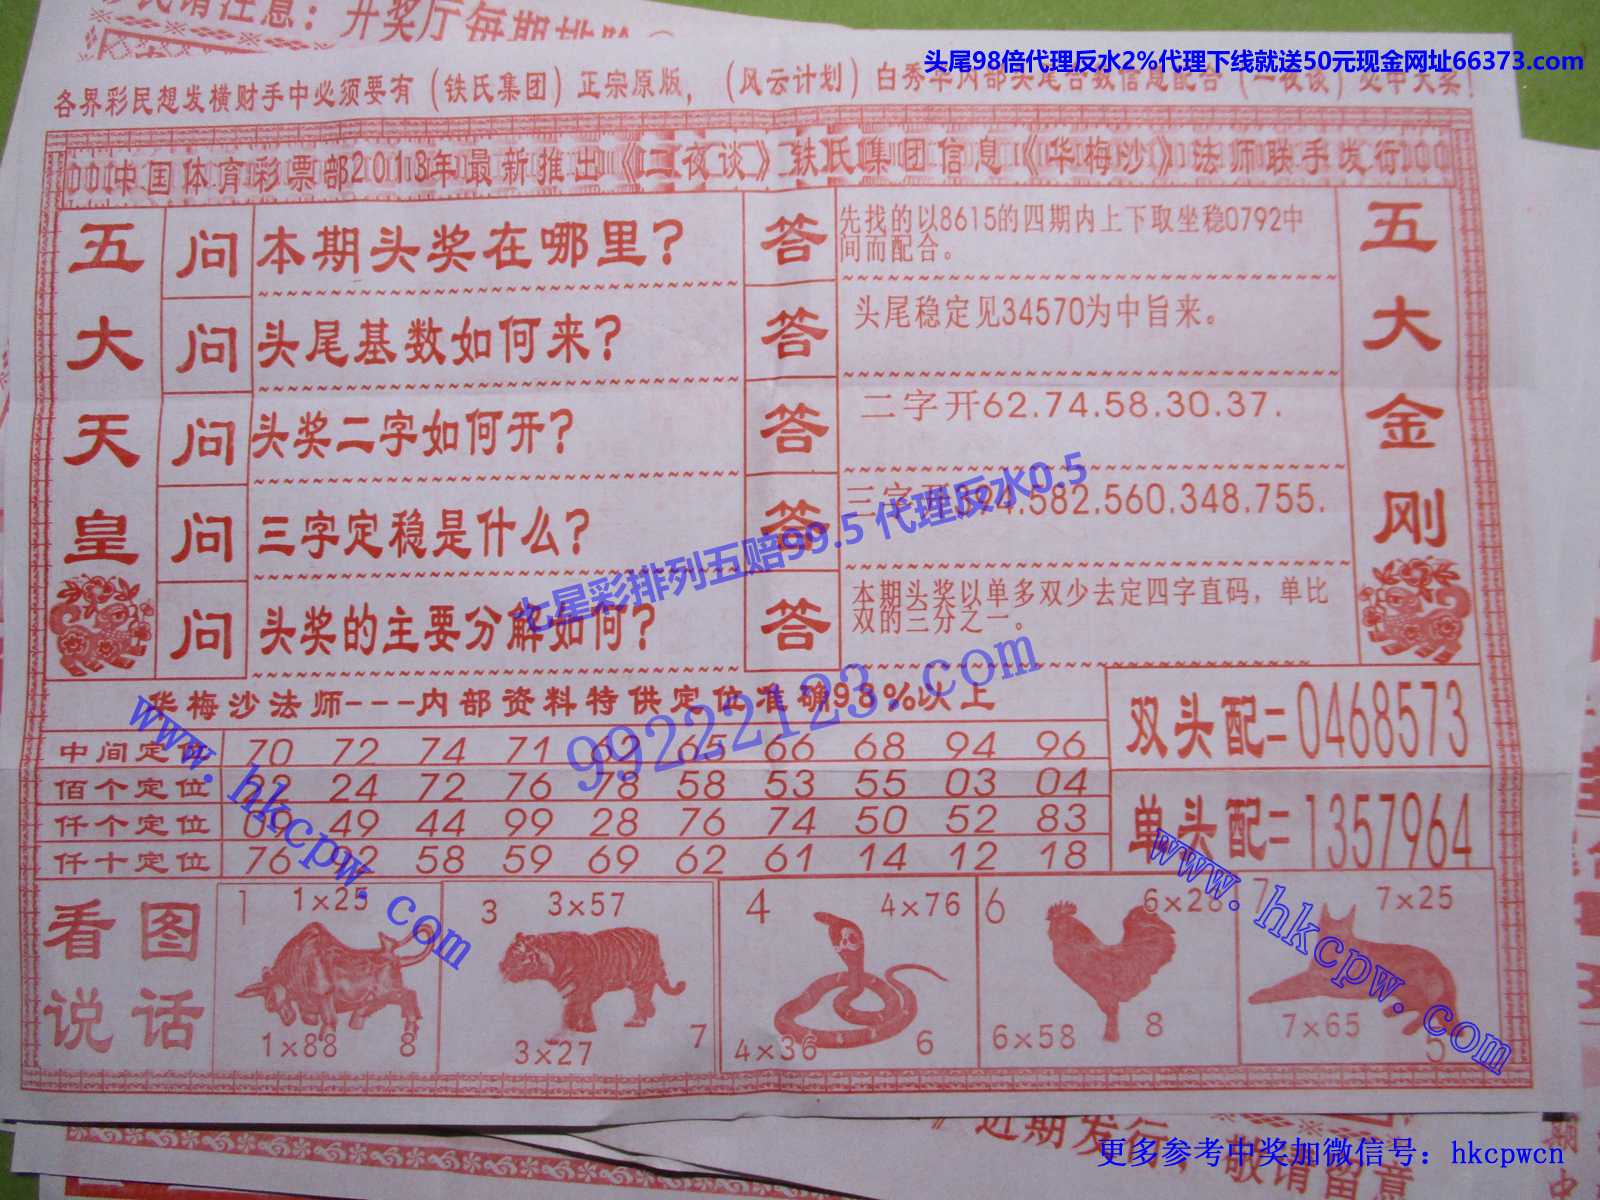 民请注意：开奖厅每期排
头尾98倍代理反水2%代理下线就送50元现金网址66373.com
各界彩民想发横财手中必须要有（铁氏集团）正宗原版，（风云计划）白秀华内部头尾合数信息配合（一夜谈）必中大奖！
中国体育彩票部2013年最新推出《二夜谈》铁氏集团信息《华梅沙》法师联手发行
五大天皇
问 本期头奖在哪里？ 答 先找的以8615的四期内上下取坐稳0792中
间而配合。
问 头尾基数如何来？ 答 头尾稳定见34570为中旨来。
问 头奖二字如何开？ 答 二字开62.74.58.30.37.
问 三字定稳是什么？ 答 三字开394.582.560.348.755.
问 头奖的主要分解如何？ 答 本期头奖以单多双少去定四字直码，单比
双的三分之一。
五大金刚
七星彩排列五赔99.5 代理反水0.5
99222123.com
华梅沙法师---内部资料特供定位准确98%以上
中间定位 70 72 74 71 62 65 66 68 94 96
佰个定位 22 24 72 76 78 58 53 55 03 04
仟个定位 09 49 44 99 28 76 74 50 52 83
仟十定位 76 92 58 59 69 62 61 14 12 18
双头配=0468573
单头配=1357964
www.hkcpw.com
www.hkcpw.com
看图
说话
1 1×25
1×88 8
3 3×57
3×27 7
4 4×76
4×36 6
6 6×28
6×58 8
7 7×25
7×65 5
近期发行，敬请留意
更多参考中奖加微信号：hkcpwcn